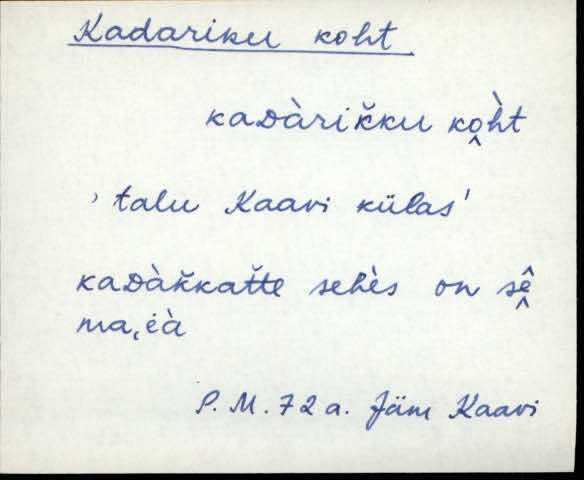 Kadariku koht
kaᴅàrik̆ku ko̭h̀t
' talu Kaavi külas'
kaᴅàk̆kat̆te sehès on sḙ̂
ma,ià
P. M. 72 a. Jäm Kaavi